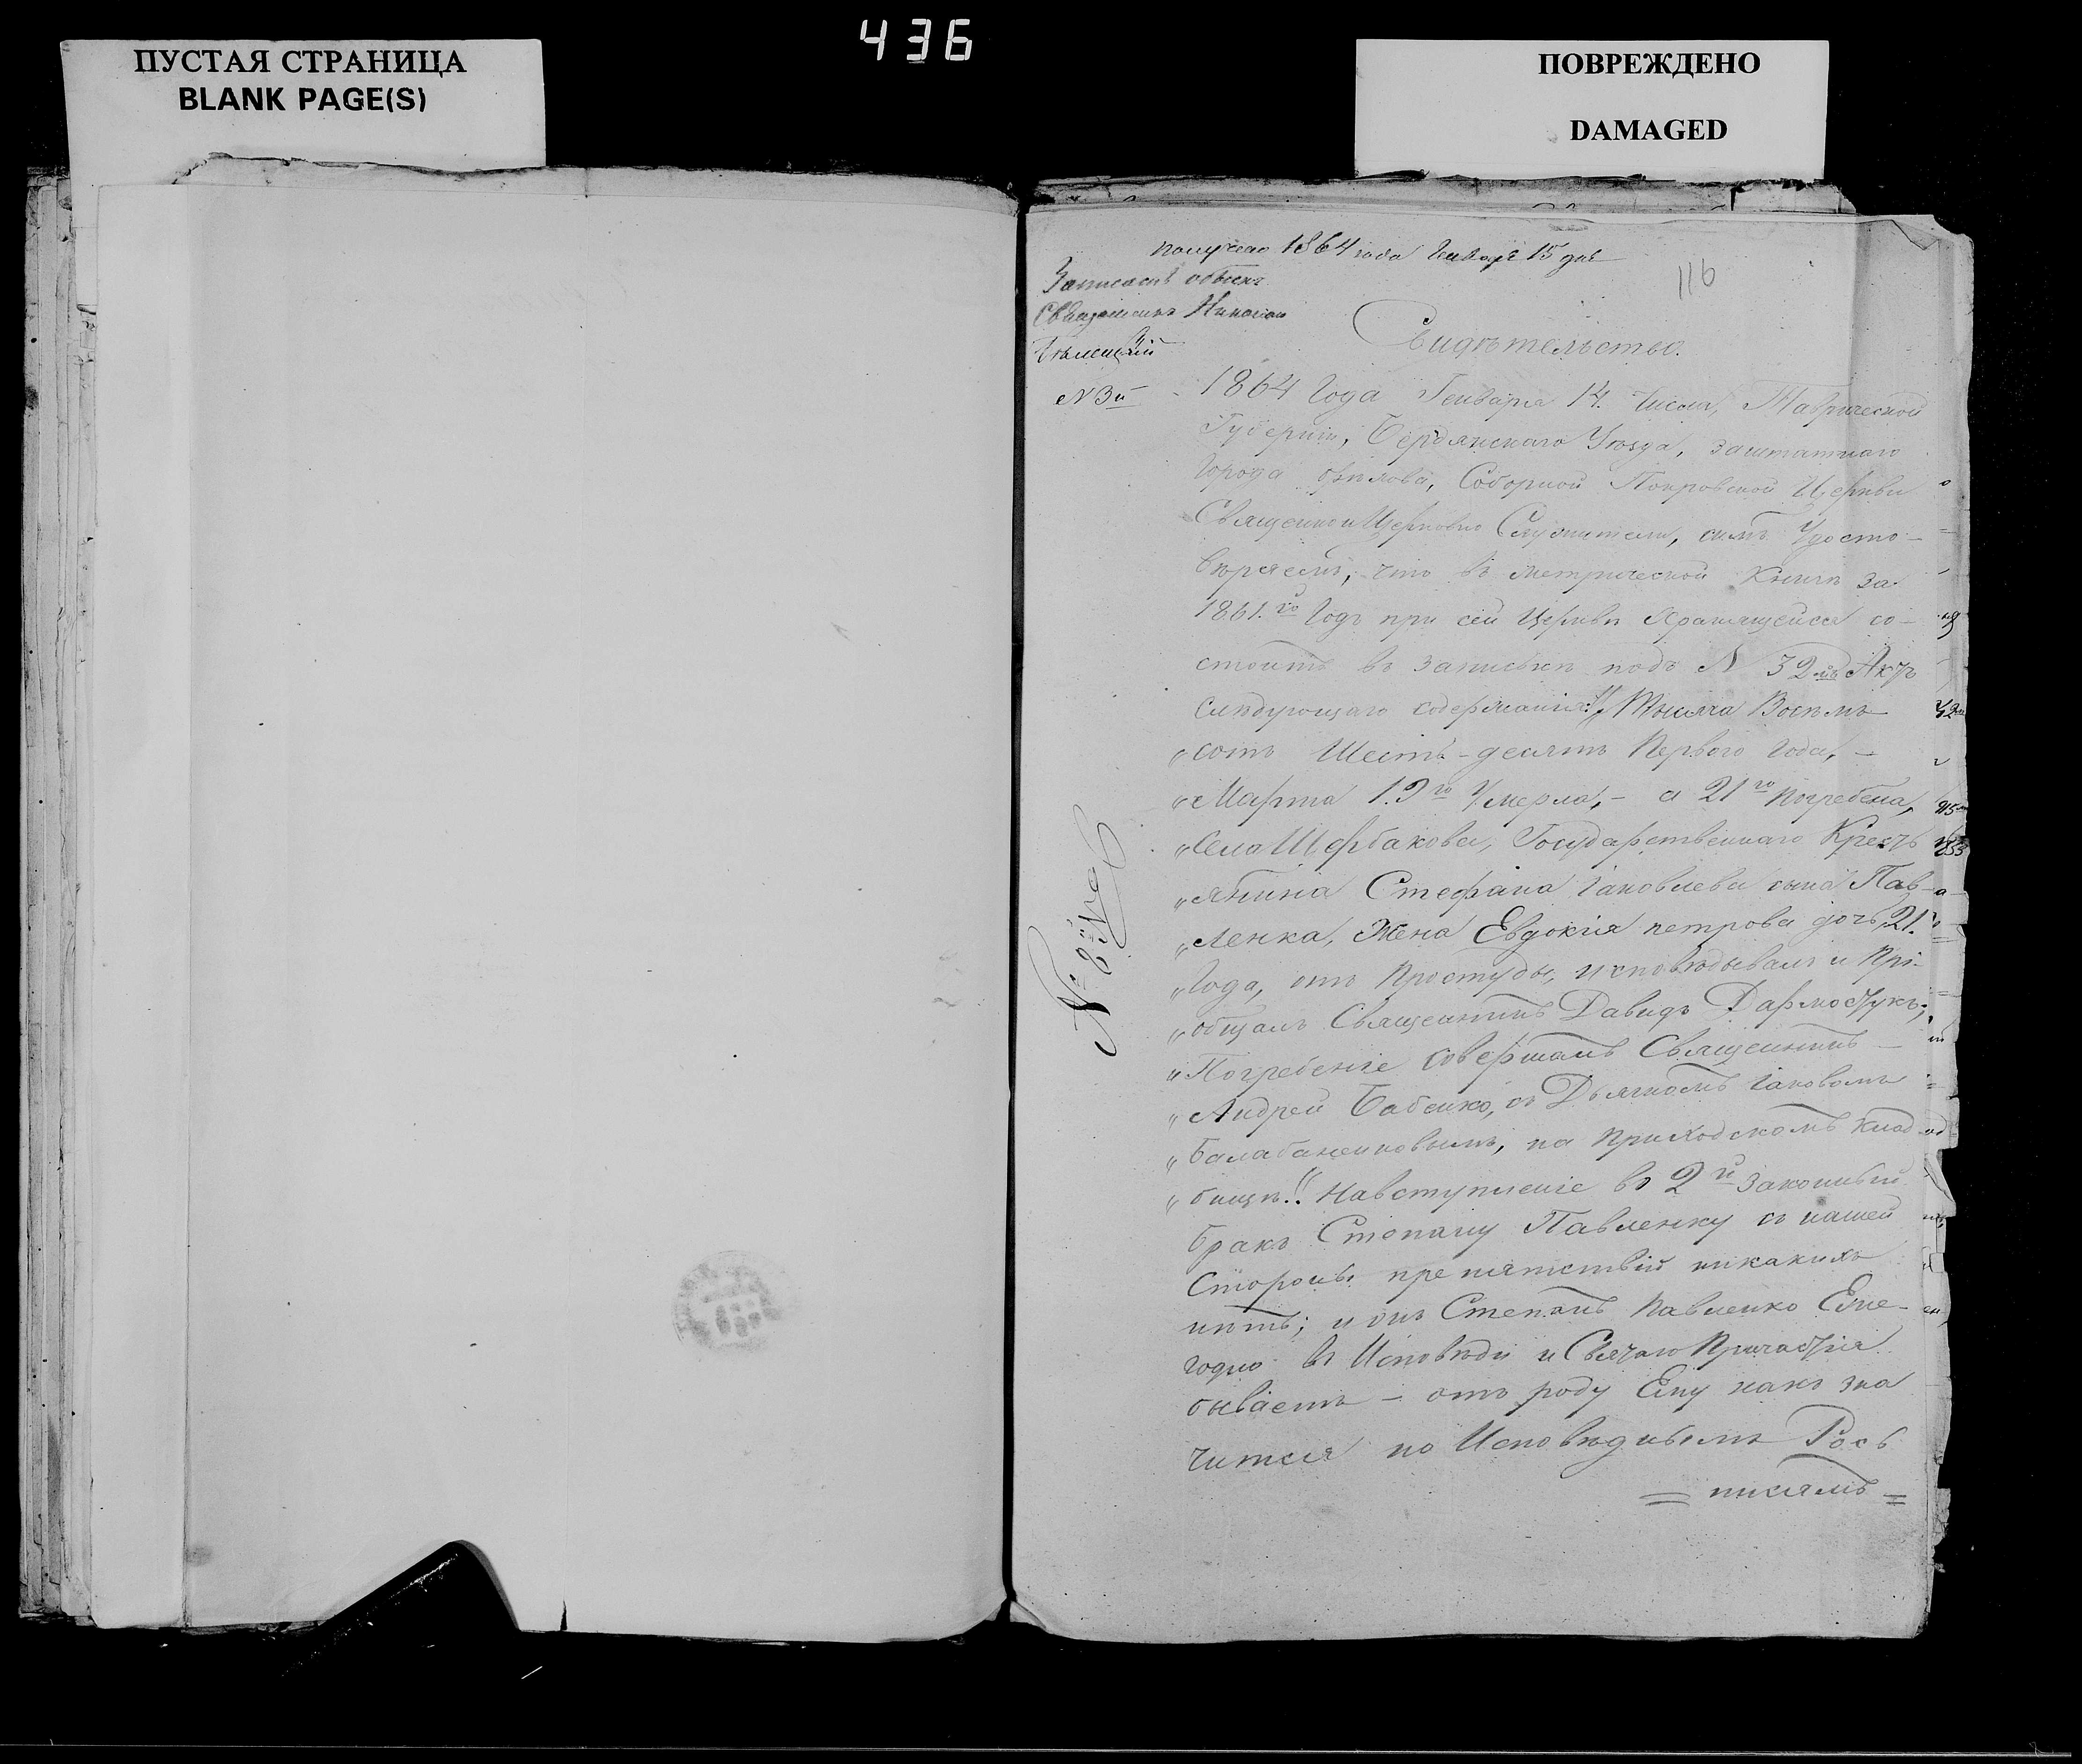 436
ПУСТАЯ СТРАНИЦА
BLANK PAGE(S)
ПОВРЕЖДЕНО
DAMAGED
получено 1864 года Генваря 15 дня
116
Записать обыскъ
Священникъ Николай
Свидѣтельство.
N 3й
1864 Года Генваря 14. Числа, Таврической
Губерніи, Бердянскаго Уѣзда, заштатнаго
Города Орѣхова, Соборной Покровской Церкви
Священно и Церковно Служители, симъ Удосто-
вѣряемъ, что въ метрической Книгѣ за
1861.го Годъ при сей Церкви Хранящейся со-
стоитъ въ запискѣ подъ N 32мъ Актъ
слѣдующаго содержанія: „Тысяча Восемь
„сотъ Шесть-десятъ Перваго Года, —
„Марта 19го Умерла, — а 21го Погребена,
„Села Щербаковы, Государственнаго Крестъ
„янина Стефана Іаковлева сына Пав-
„ленка, Жена Евдокія петрова дочь, 21.
„Года, отъ Простуды, исповѣдывалъ и Прі-
„общалъ Священникъ Давидъ Дармостукъ;
„Погребеніе совершалъ Священникъ —
„Андрей Бабенко, съ Дьячкомъ Іаковомъ
„Балабаненковымъ, на Приходскомъ клад-
„бищѣ.“ На вступленіе во 2й законный
бракъ Степану Павленку съ нашей
Стороны препятствій никакихъ
нѣтъ; и онъ Степанъ Павленко Еже-
годно въ Исповѣди и Святаго Причастія
бываетъ — отъ роду Ему какъ зна
чится по Исповѣднымъ Рос
= писямъ =